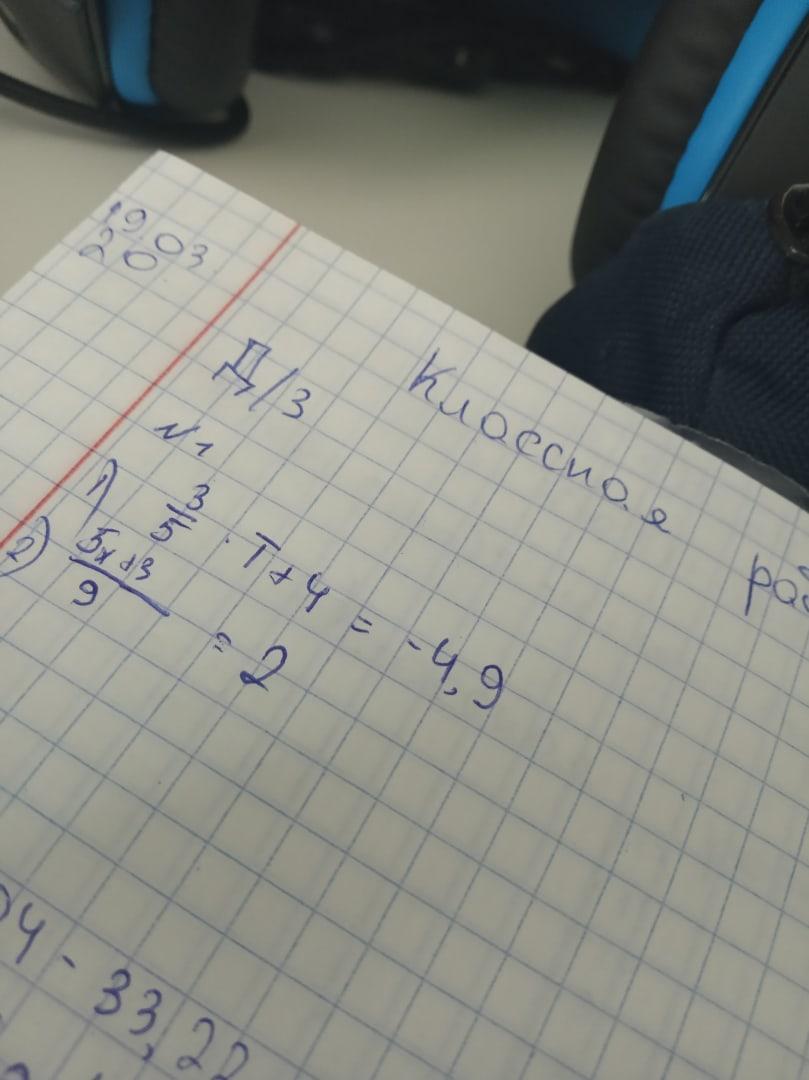 19 03
20
Классная
Д/З
№1
1) 3/5 · T + 4 = -4,9
2) 5x+3/9 = 2
04 - 33,22